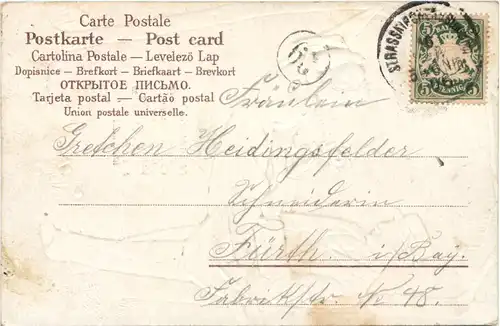 Carte Postale
Postkarte — Post card
Cartolina Postale — Levelező Lap
Dopisnice — Brefkort — Briefkaart — Brevkort
ОТКРЫТОЕ ПИСЬМО.
Tarjeta postal — Cartão postal
Union postale universelle.
5 5
5 5
Fräulein
Gretchen Heidingsfelder
Schneiderin
Fürth. i/Bay.
Fabrikstr. No 48.